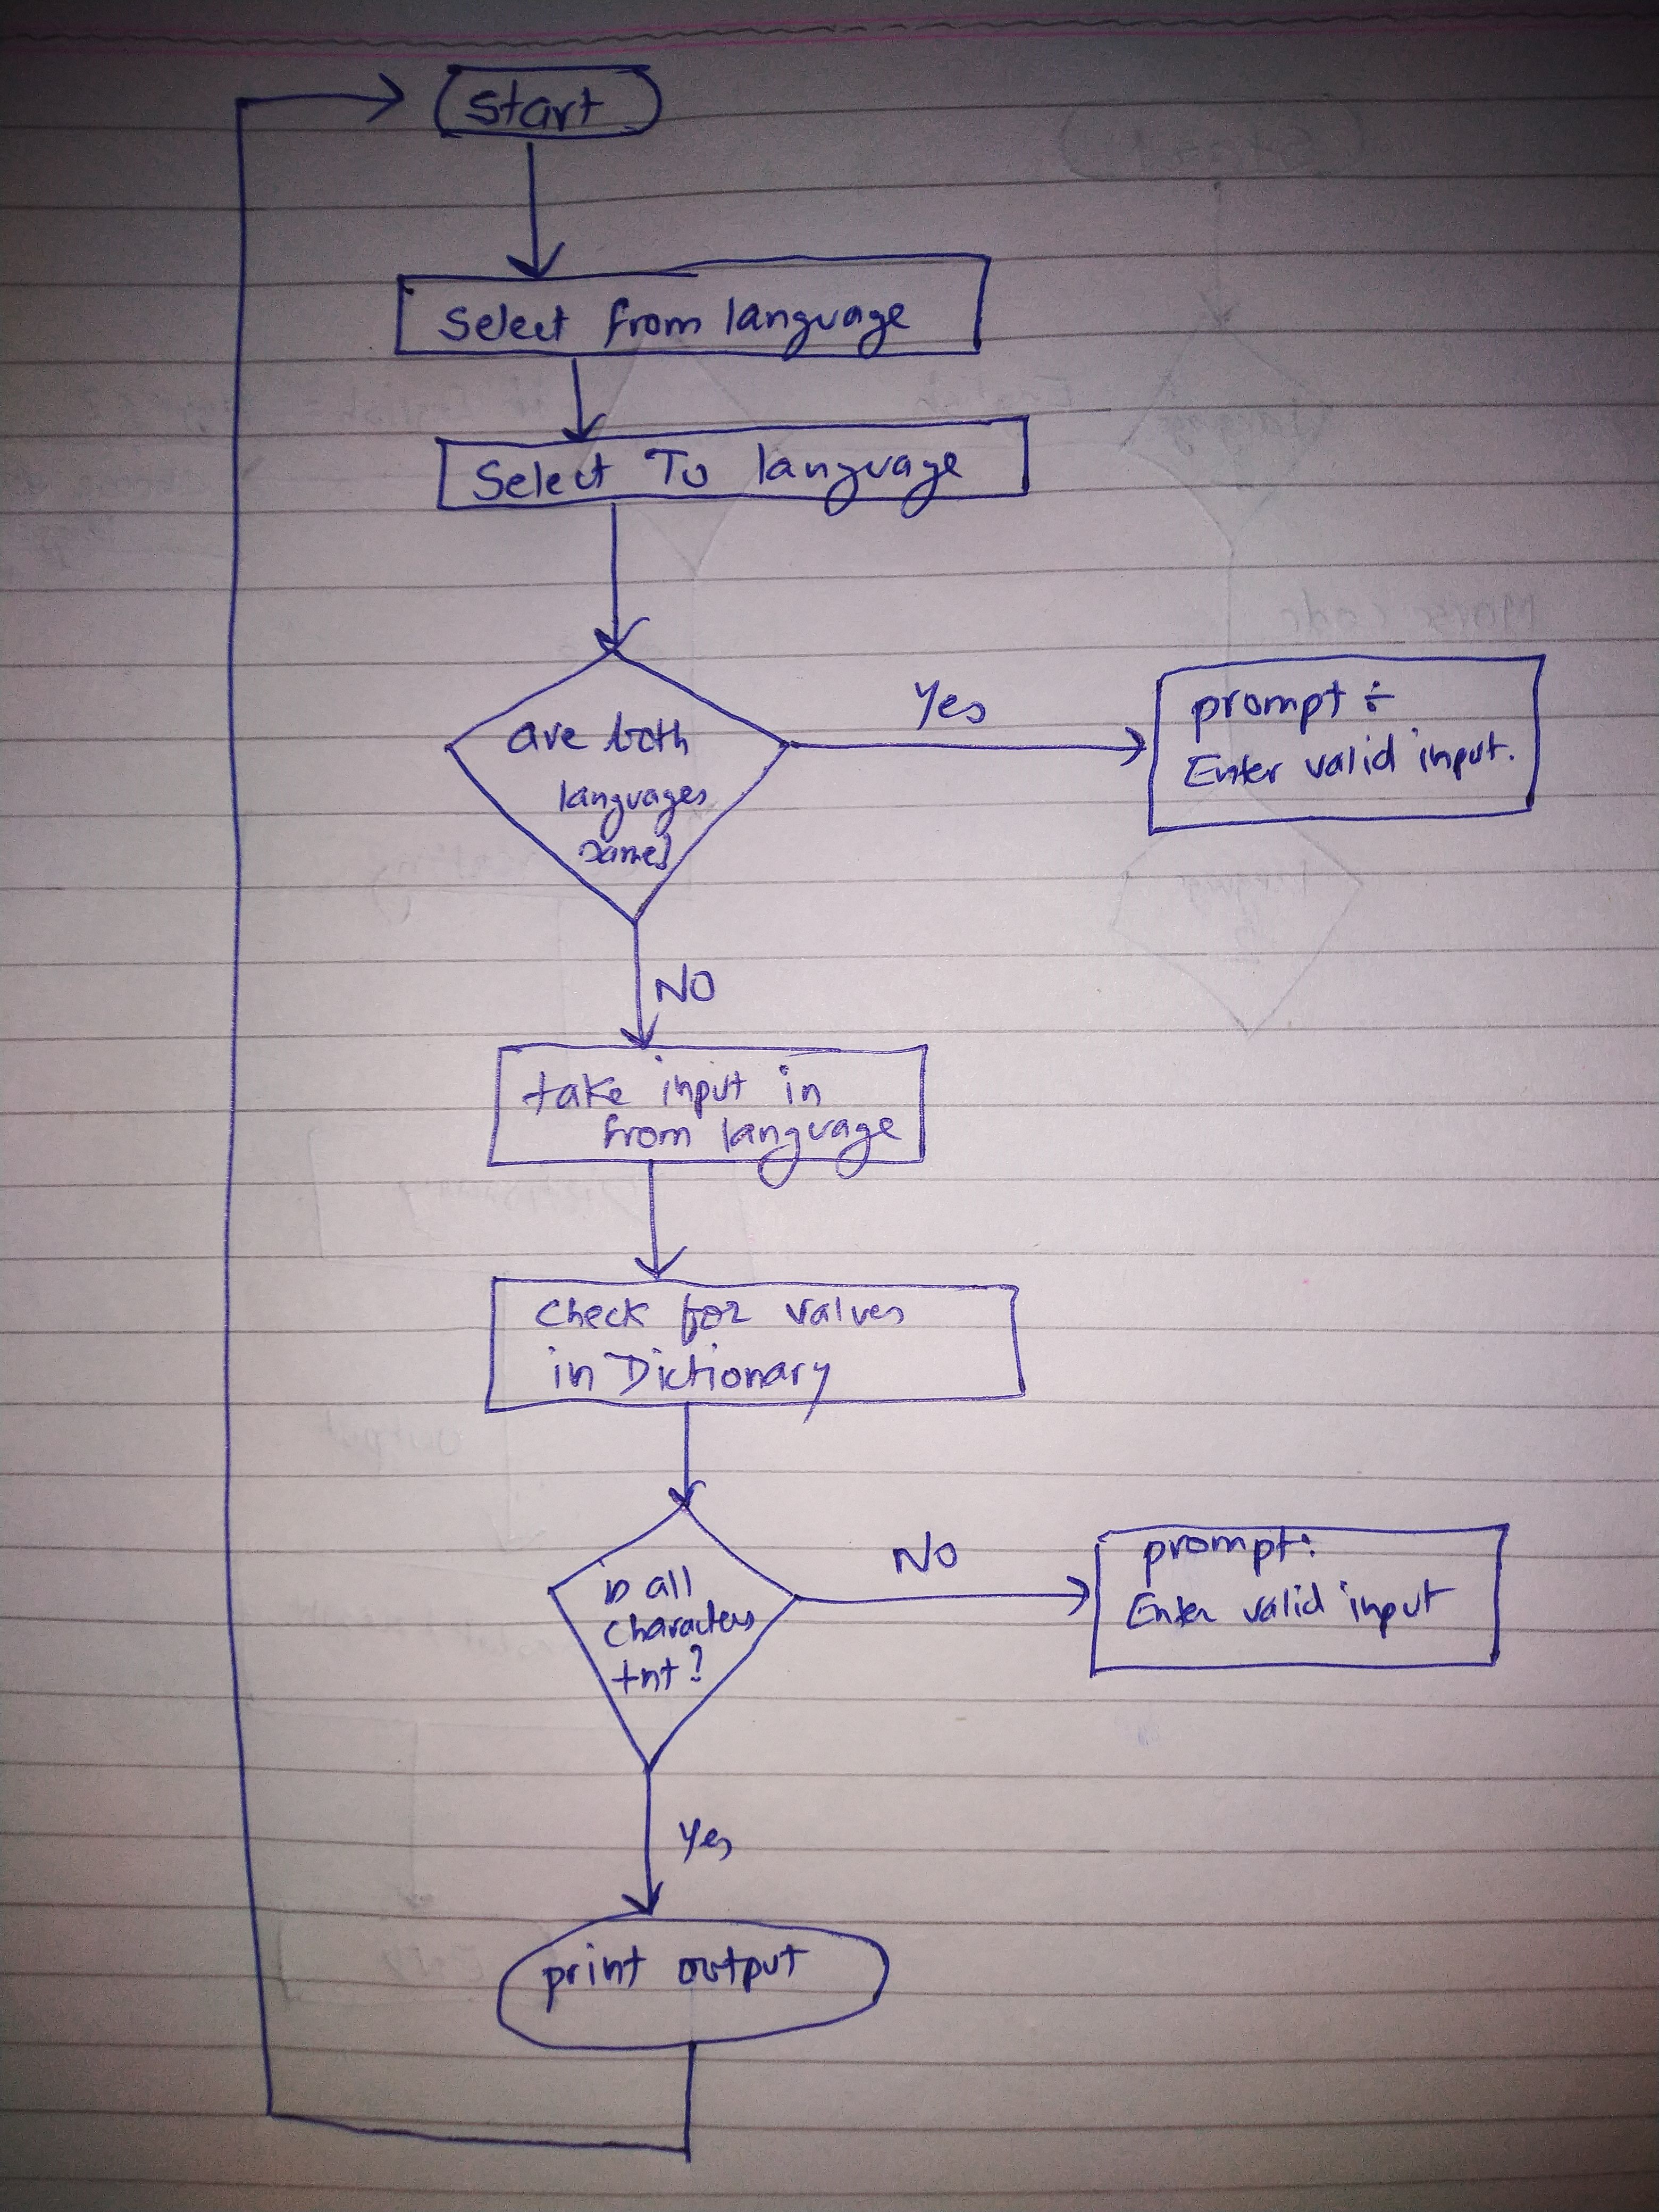 Start
Select from language
Select To language
are both
languages
same?
Yes
prompt ÷
Enter valid input.
NO
take input in
from language
Check for values
in Dictionary
is all
characters
NO
prompt:
Enter valid input
Yes
print output